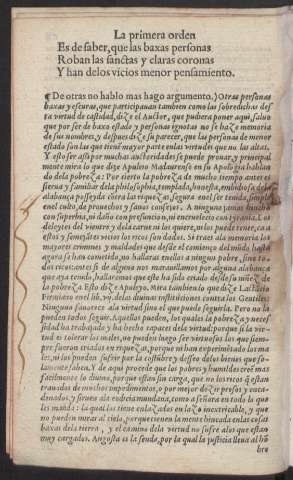 La primera orden
Es de saber, que las baxas personas
Roban las sanctas y claras coronas
Y han delos vicios menor pensamiento.
¶ De otras no hablo mas hago argumento.) Otras personas
baxas y escuras, que participauan tambien como las sobredichas des
ta virtud de castidad, dize el Auctor, que pudiera poner aqui, saluo
que por ser de baxo estado y personas ignotas no se haze memoria
de sus nombres, y despues dize su parecer, que las personas de menor
estado son las que tienen mayor parte enlas virtudes que no las altas.
Y esto ser assi por muchas auctoridades se puede prouar, y principal
mente mira lo que dize Apuleyo Madaurense en su Apologia hablan
do dela pobreza: Por cierto la pobreza de mucho tiempo antes es
sierua y familiar dela philosophia, templada, honesta,
alabança posseyda contra las riquezas, segura enel ser tenida, simple
enel culto, de prouechos y sanos consejos. A ninguno jamas hincho
con superbia, ni daño con presuncion, ni encruelecio con tyrania. Los
deleytes del vientre y dela carne ni los quiere, ni los puede tener, ca a
estos y semejantes vicios los ricos son dados. Si traes ala memoria los
mayores crimines y maldades que desde el comienço del mundo hasta
agora se han cometido, no hallaras enellas a ningun pobre, sino to-
dos ricos: antes si de alguno nos marauillamos por alguna alabança
que aya tenido, hallaremos que este ha sido criado desde su niñez de
la pobreza. Esto dize Apuleyo. Mira tambien lo que dize Lactancio
Firmiano enel lib. v. delas diuinas instituciones contra los Gentiles:
Ninguno fauorece ala virtud sino el que puede seguirla. Pero no la
pueden todos seguir. Aquellos pueden, los quales la pobreza y neces-
sidad ha trabajado y ha hecho capaces dela virtud: porque si la vir-
tud es tolerar los males, no pueden luego ser virtuosos los que siem-
pre fueron criados en riquezas, porque ni han experimentado los ma
les, ni los pueden sufrir por la costumbre y desseo delos bienes que so-
lamente saben. Y de aqui procede que los pobres y humildes creen mas
facilmente lo diuino, porque estan sin carga, que no los ricos que estan
trauados de muchos impedimentos, y por mejor dezir presos y enca-
denados, y siruen ala codicia mundana, como a señora en todo lo que
les manda: la qual los tiene enlazados en lazo inextricable, y que
no pueden mirar al cielo, porque tienen la mente hincada enlas cosas
baxas dela tierra, y el camino dela virtud no sufre alos que estan
muy cargados. Angosta es la senda, por la qual la justicia lleua al hō
bre